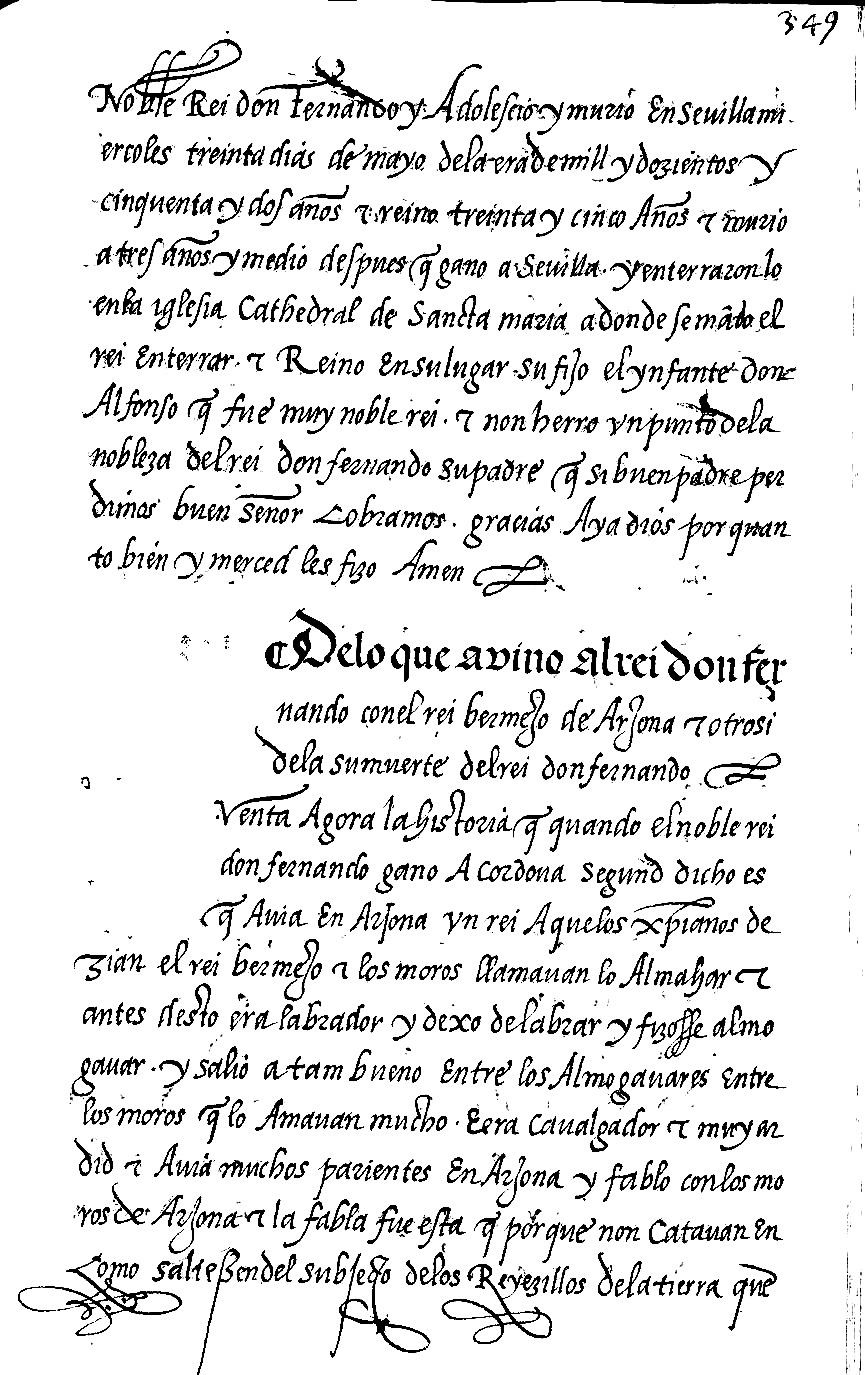 349
Noble Rei don fernando y Adolescio y murio En sevilla mi
ercoles treinta dias de mayo de la era de mill y dozientos y
cinquenta y dos años τ reino treinta y cinco Años τ murio
a tres años y medio despues q̃ gano a Sevilla. y enterraron lo
en la iglesia Cathedral de Sancta maria adonde se mãdo el
rei Enterrar. τ Reino En su lugar su fijo el ynfante don
Alfonso q̃ fue muy noble rei. τ non herro vn punto de la
nobleza del rei don fernando su padre q̃ si buen padre per
dimos buen señor Cobramos. gracias Aya dios por quan
to bien y merced les fizo Amen
¶ De lo que avino al rei don fer
nando con el rei bermejo de Arjona τ otrosi
de la su muerte del rei don fernando
Venta Agora la historia q̃ quando el noble rei
don fernando gano A Cordova segund dicho es
q̃ Auia En Arjona vn rei A quelos xp̃ianos de
zian el rei bermejo τ los moros llamauan lo Almahar τ
antes desto era labrador y dexo de labrar y fizosse almo
gauar. y salio a tam bueno Entre los Almogauares Entre
los moros q̃ lo Amauan mucho. E era Caualgador τ muy ar
did τ Auia muchos parientes En Arjona y fablo con los mo
ros de Arjona τ la fabla fue esta q̃ porque non Catauan En
Como saliessen del subjeto de los Reyezillos de la tierra que